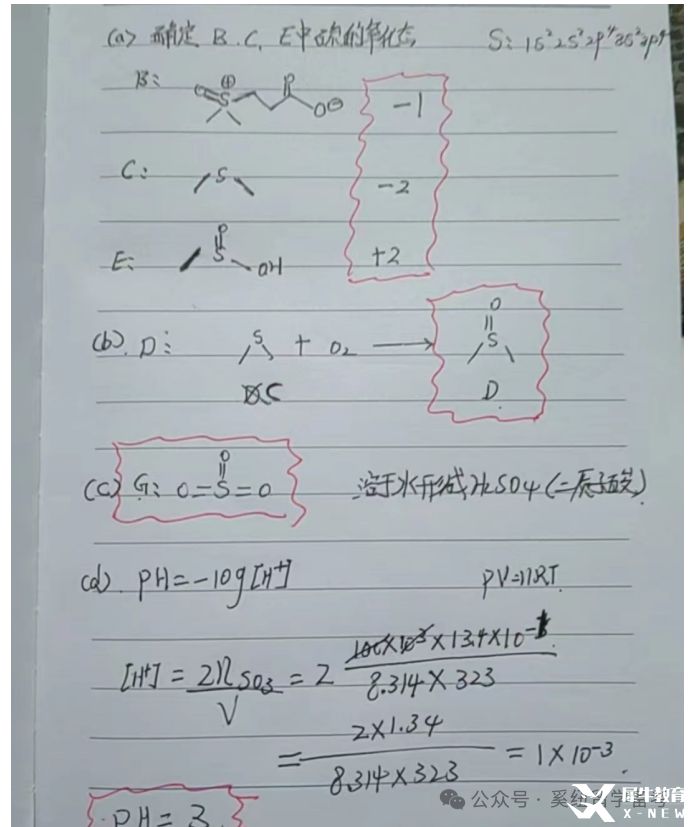 (a) 确定 B.C. E中硫的氧化态 S: 1s²2s²2p⁴3s²3p⁴
B: O=S⊕ O O⊖ -1
C: S -2
E: O S OH +2
(b). D: S + O₂ → O S
C D
(c) G: O=S=O O 溶于水形成H₂SO₄(二质子酸)
(d). PH=-10g[H⁺] PV=nRT.
[H⁺] = 2n SO₃ / V = 2 100×10³×13.4×10⁻¹ / 8.314×323
= 2×1.34 / 8.314×323 = 1×10⁻³.
PH=3
公众号·
犀牛教育
X-NEW